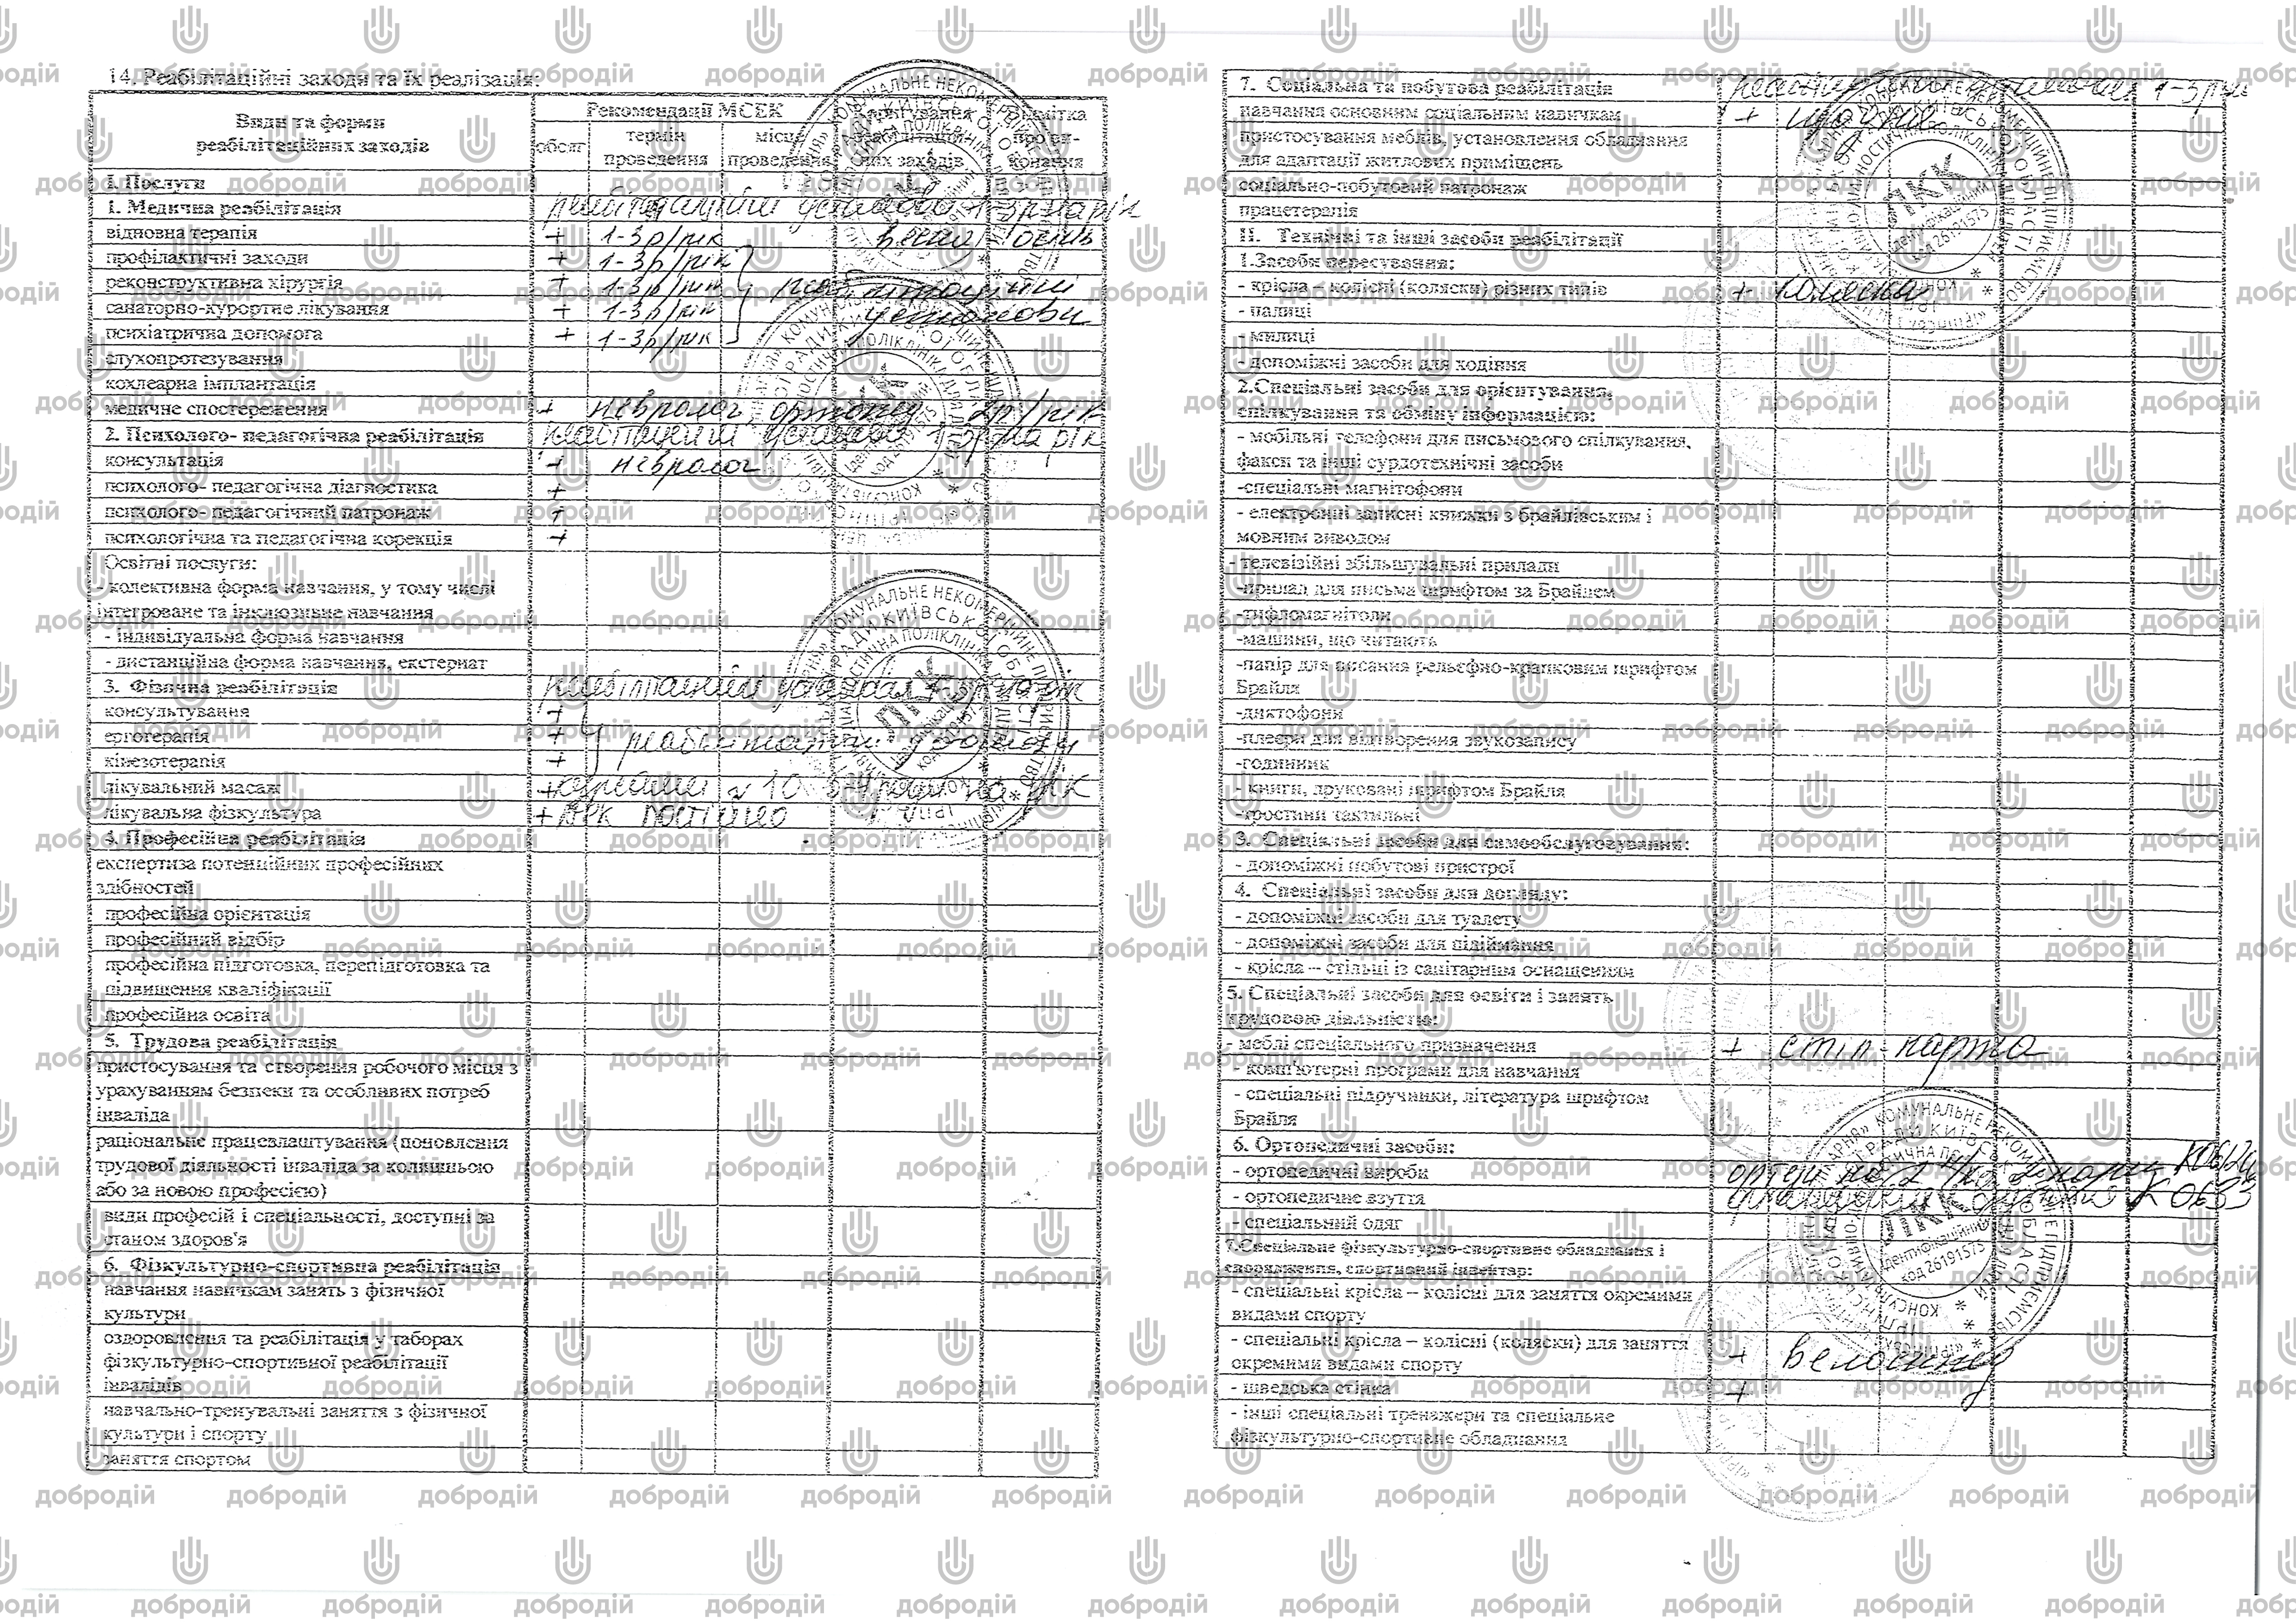 14. Реабілітаційні заходи та їх реалізація:
Види та форми реабілітаційних заходів
Рекомендації МСЕК
обсяг
термін проведення
місце проведення
Коригування реабілітаційних заходів
Відмітка про виконання
I. Послуги
1. Медична реабілітація
відновна терапія + 1-3р/рік весна осінь
профілактичні заходи + 1-3р/рік
реконструктивна хірургія + 1-3р/рік
санаторно-курортне лікування + 1-3р/рік установи
психіатрична допомога + 1-3р/рік
слухопротезування
кохлеарна імплантація
медичне спостереження + невролог, ортопед 2р/рік
2. Психолого- педагогічна реабілітація
консультація + невролог
психолого- педагогічна діагностика +
психолого- педагогічний патронаж +
психологічна та педагогічна корекція +
Освітні послуги:
- колективна форма навчання, у тому числі
інтегроване та інклюзивне навчання
- індивідуальна форма навчання
- дистанційна форма навчання, екстернат
3. Фізична реабілітація
консультування +
ерготерапія +
кінезотерапія +
лікувальний масаж + на рік
лікувальна фізкультура + ЛФК постійно
4. Професійна реабілітація
експертиза потенційних професійних
здібностей
професійна орієнтація
професійний відбір
професійна підготовка, перепідготовка та
підвищення кваліфікації
професійна освіта
5. Трудова реабілітація
пристосування та створення робочого місця з
урахуванням безпеки та особливих потреб
інваліда
раціональне працевлаштування (поновлення
трудової діяльності інваліда за колишньою
або за новою професією)
види професій і спеціальності, доступні за
станом здоров'я
6. Фізкультурно-спортивна реабілітація
навчання навичкам занять з фізичної
культури
оздоровлення та реабілітація у таборах
фізкультурно-спортивної реабілітації
інвалідів
навчально-тренувальні заняття з фізичної
культури і спорту
заняття спортом
7. Соціальна та побутова реабілітація
навчання основним соціальним навичкам +
пристосування меблів, установлення обладнання
для адаптації житлових приміщень
соціально-побутовий патронаж
працетерапія
II. Технічні та інші засоби реабілітації
1.Засоби пересування:
- крісла – колісні (коляски) різних типів + коляска
- палиці
- милиці
- допоміжні засоби для ходіння
2.Спеціальні засоби для орієнтування,
спілкування та обміну інформацією:
- мобільні телефони для письмового спілкування,
факси та інші сурдотехнічні засоби
-спеціальні магнітофони
- електронні записні книжки з брайлівським і
мовним виводом
- телевізійні збільшувальні прилади
-прилад для письма шрифтом за Брайлем
-тифломагнітоли
-машини, що читають
-папір для писання рельєфно-крапковим шрифтом
Брайля
-диктофони
-плеєри для відтворення звукозапису
-годинник
- книги, друковані шрифтом Брайля
-тростини тактильні
3. Спеціальні засоби для самообслуговування:
- допоміжні побутові пристрої
4. Спеціальні засоби для догляду:
- допоміжні засоби для туалету
- допоміжні засоби для підіймання
- крісла – стільці із санітарним оснащенням
5. Спеціальні засоби для освіти і занять
трудовою діяльністю:
- меблі спеціального призначення + стіл-парта
- комп'ютерні програми для навчання
- спеціальні підручники, література шрифтом
Брайля
6. Ортопедичні засоби:
- ортопедичні вироби
- ортопедичне взуття
- спеціальний одяг
7.Спеціальне фізкультурно-спортивне обладнання і
спорядження, спортивний інвентар:
- спеціальні крісла – колісні для заняття окремими
видами спорту
- спеціальні крісла – колісні (коляски) для заняття
окремими видами спорту +
- шведська стінка +
- інші спеціальні тренажери та спеціальне
фізкультурно-спортивне обладнання
ПКК
Ідентифікаційний
код 26191575
добродій